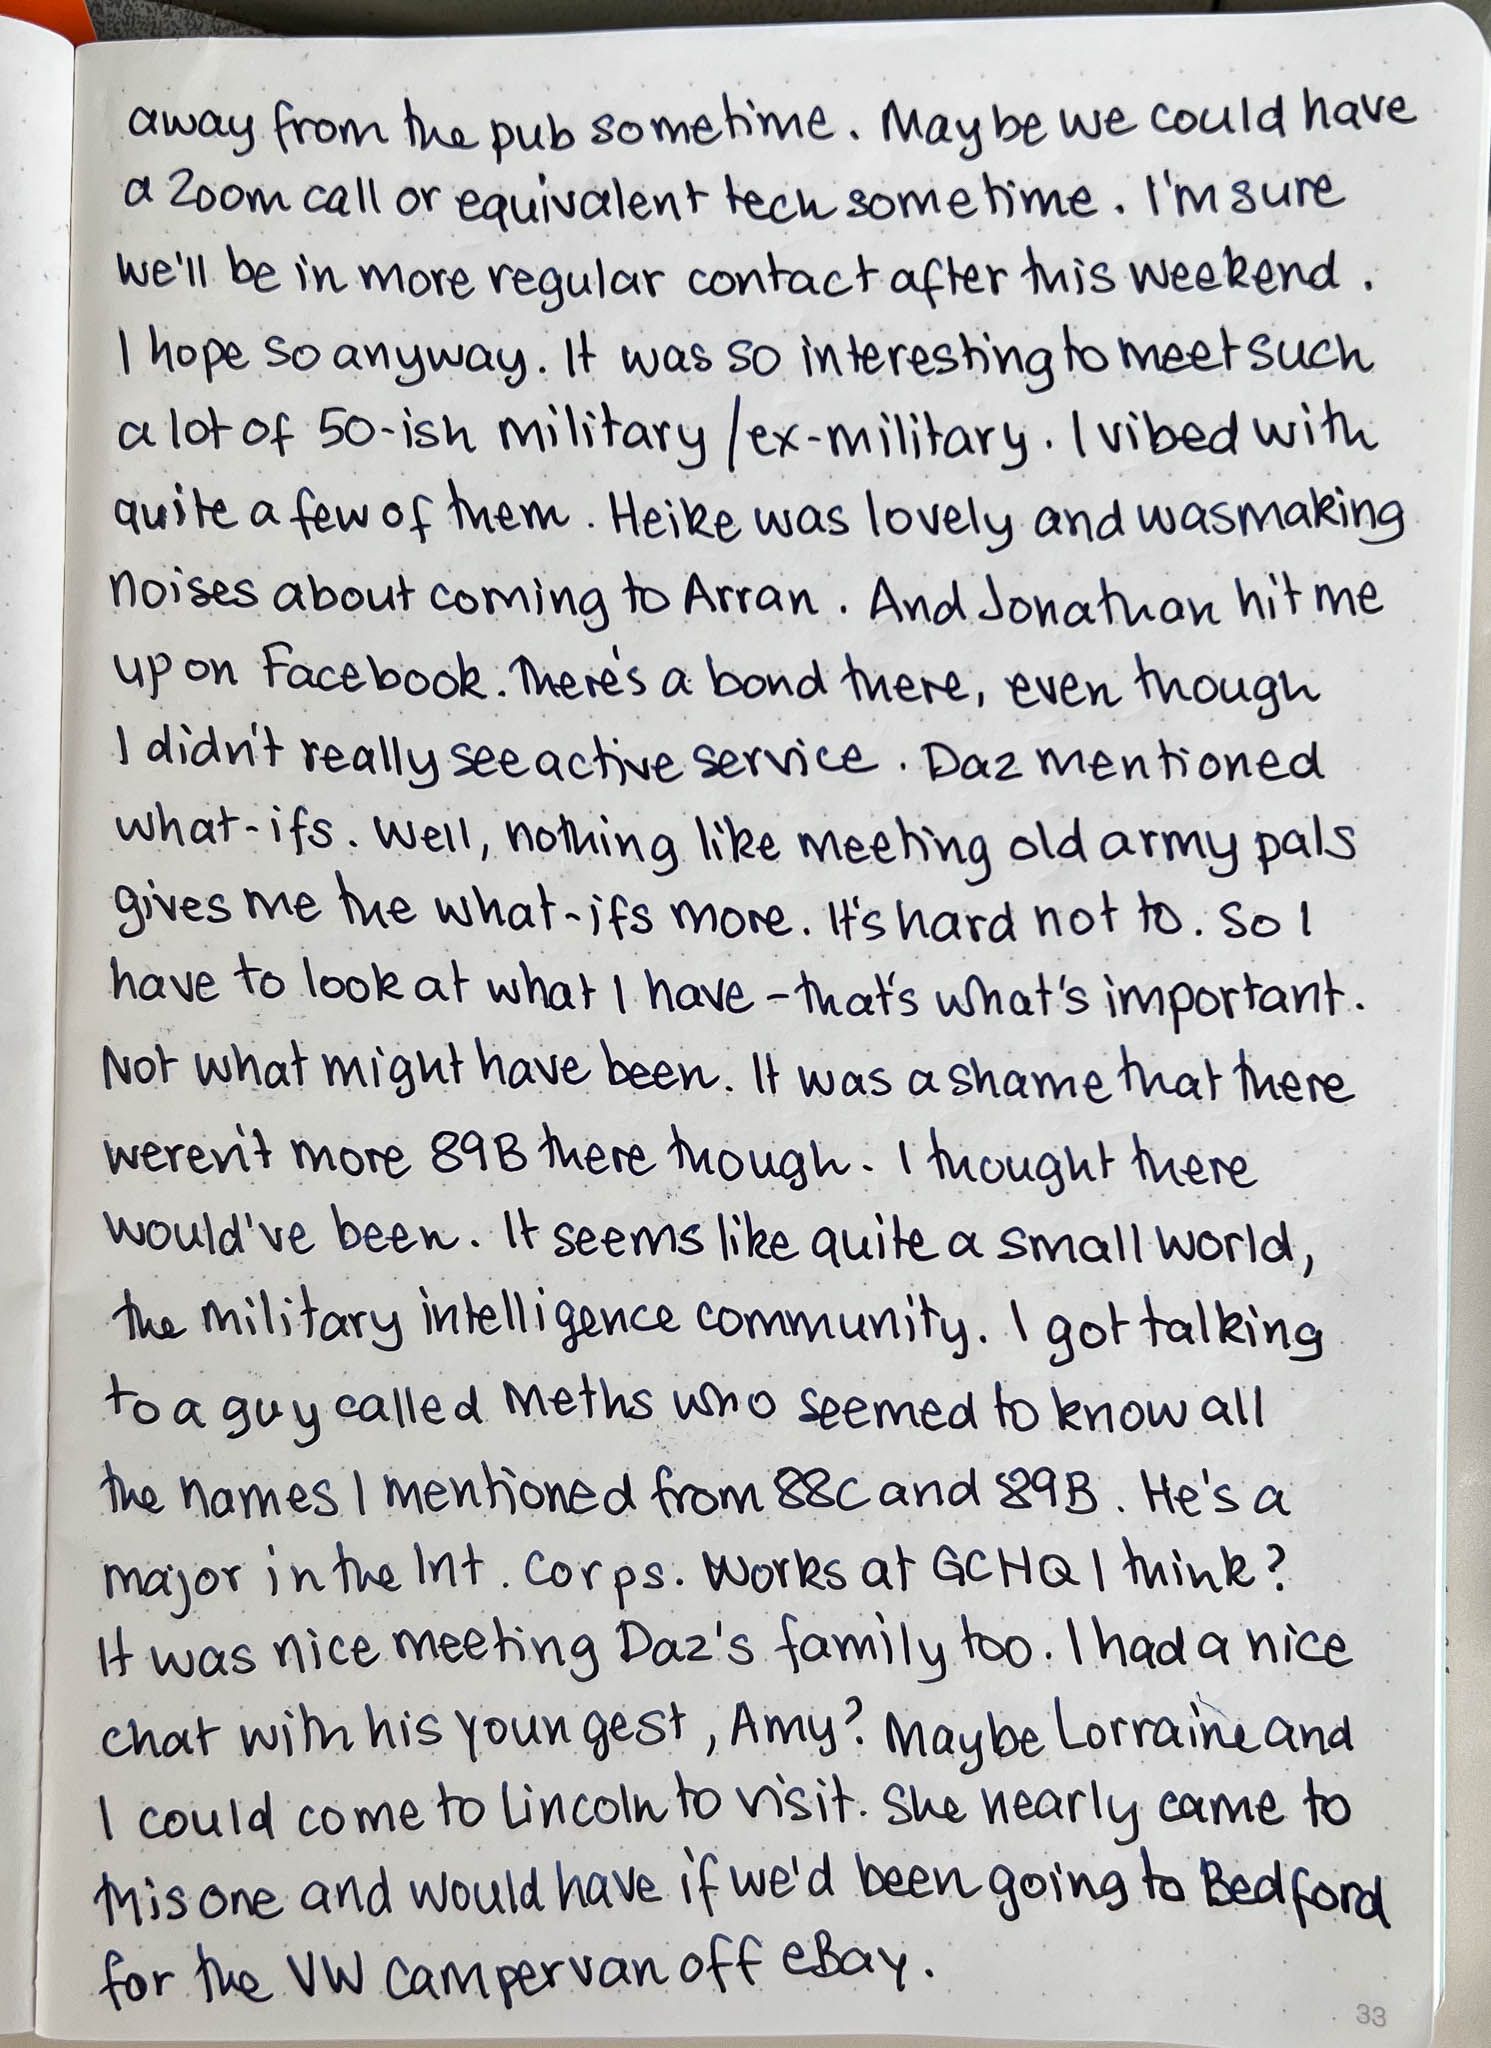 away from the pub sometime. Maybe we could have
a Zoom call or equivalent tech sometime. I'm sure
we'll be in more regular contact after this weekend.
I hope so anyway. It was so interesting to meet such
a lot of 50-ish military/ex-military. I vibed with
quite a few of them. Heike was lovely and was making
noises about coming to Arran. And Jonathan hit me
up on Facebook. There's a bond there, even though
I didn't really see active service. Daz mentioned
what-ifs. Well, nothing like meeting old army pals
gives me the what-ifs more. It's hard not to. So I
have to look at what I have - that's what's important.
Not what might have been. It was a shame that there
weren't more 89B there though. I thought there
would've been. It seems like quite a small world,
the military intelligence community. I got talking
to a guy called Meths who seemed to know all
the names I mentioned from 88C and 89B. He's a
major in the Int. Corps. Works at GCHQ I think?
It was nice meeting Daz's family too. I had a nice
chat with his youngest, Amy? Maybe Lorraine and
I could come to Lincoln to visit. She nearly came to
this one and would have if we'd been going to Bedford
for the VW campervan off eBay.
33